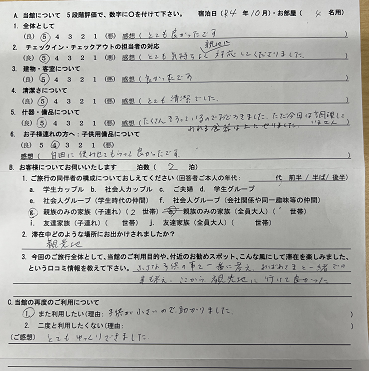 A. 当館について 5段階評価で、数字に○を付けて下さい。 宿泊日(R4 年 10月)・お部屋( 名用)
1. 全体として
(良) 5 4 3 2 1 (悪) 感想( とても良かったです )
2. チェックイン・チェックアウトの担当者の対応
(良) 5 4 3 2 1 (悪) 感想( とても気持ちよく対応してくださりました )
3. 建物・客室について
(良) 5 4 3 2 1 (悪) 感想( 良かったです )
4. 清潔さについて
(良) 5 4 3 2 1 (悪) 感想( とても清潔でした。 )
5. 什器・備品について
(良) 5 4 3 2 1 (悪) 感想( たくさんそろっているのでおどろきました。ただ今回は
6. お子様連れの方へ：子供用備品について
(良) 5 4 3 2 1 (悪)
感想( 自由に使わせてもらって良かったです )
B. お客様についてお伺いいたします 泊数( 2 泊)
1. ご旅行の同伴者の構成についておしえてください(回答者ご本人の年代: 代 前半／半ば／後半)
a. 学生カップル b. 社会人カップル c. ご夫婦 d. 学生グループ
e. 社会人グループ(学生時代の仲間) f. 社会人グループ(会社関係や同一趣味等の仲間)
g. 親族のみの家族(子連れ)( 2 世帯) 親族のみの家族(全員大人)( 世帯)
i. 友達家族(子連れ)( 世帯) j. 友達家族(全員大人)( 世帯)
2. 滞在中どのような場所にお出かけされましたか?
観光地
3. 今回のご旅行全体として、当館のご利用目的や、付近のお勧めスポット、こんな風にして滞在を楽しみました、
という口コミ情報を教えて下さい。
観光地に行けて良かった
C. 当館の再度のご利用について
1. また利用したい(理由: 子供が小さいので助かりました。 )
2. 二度と利用したくない(理由: )
(ご感想) とてもゆっくりできました